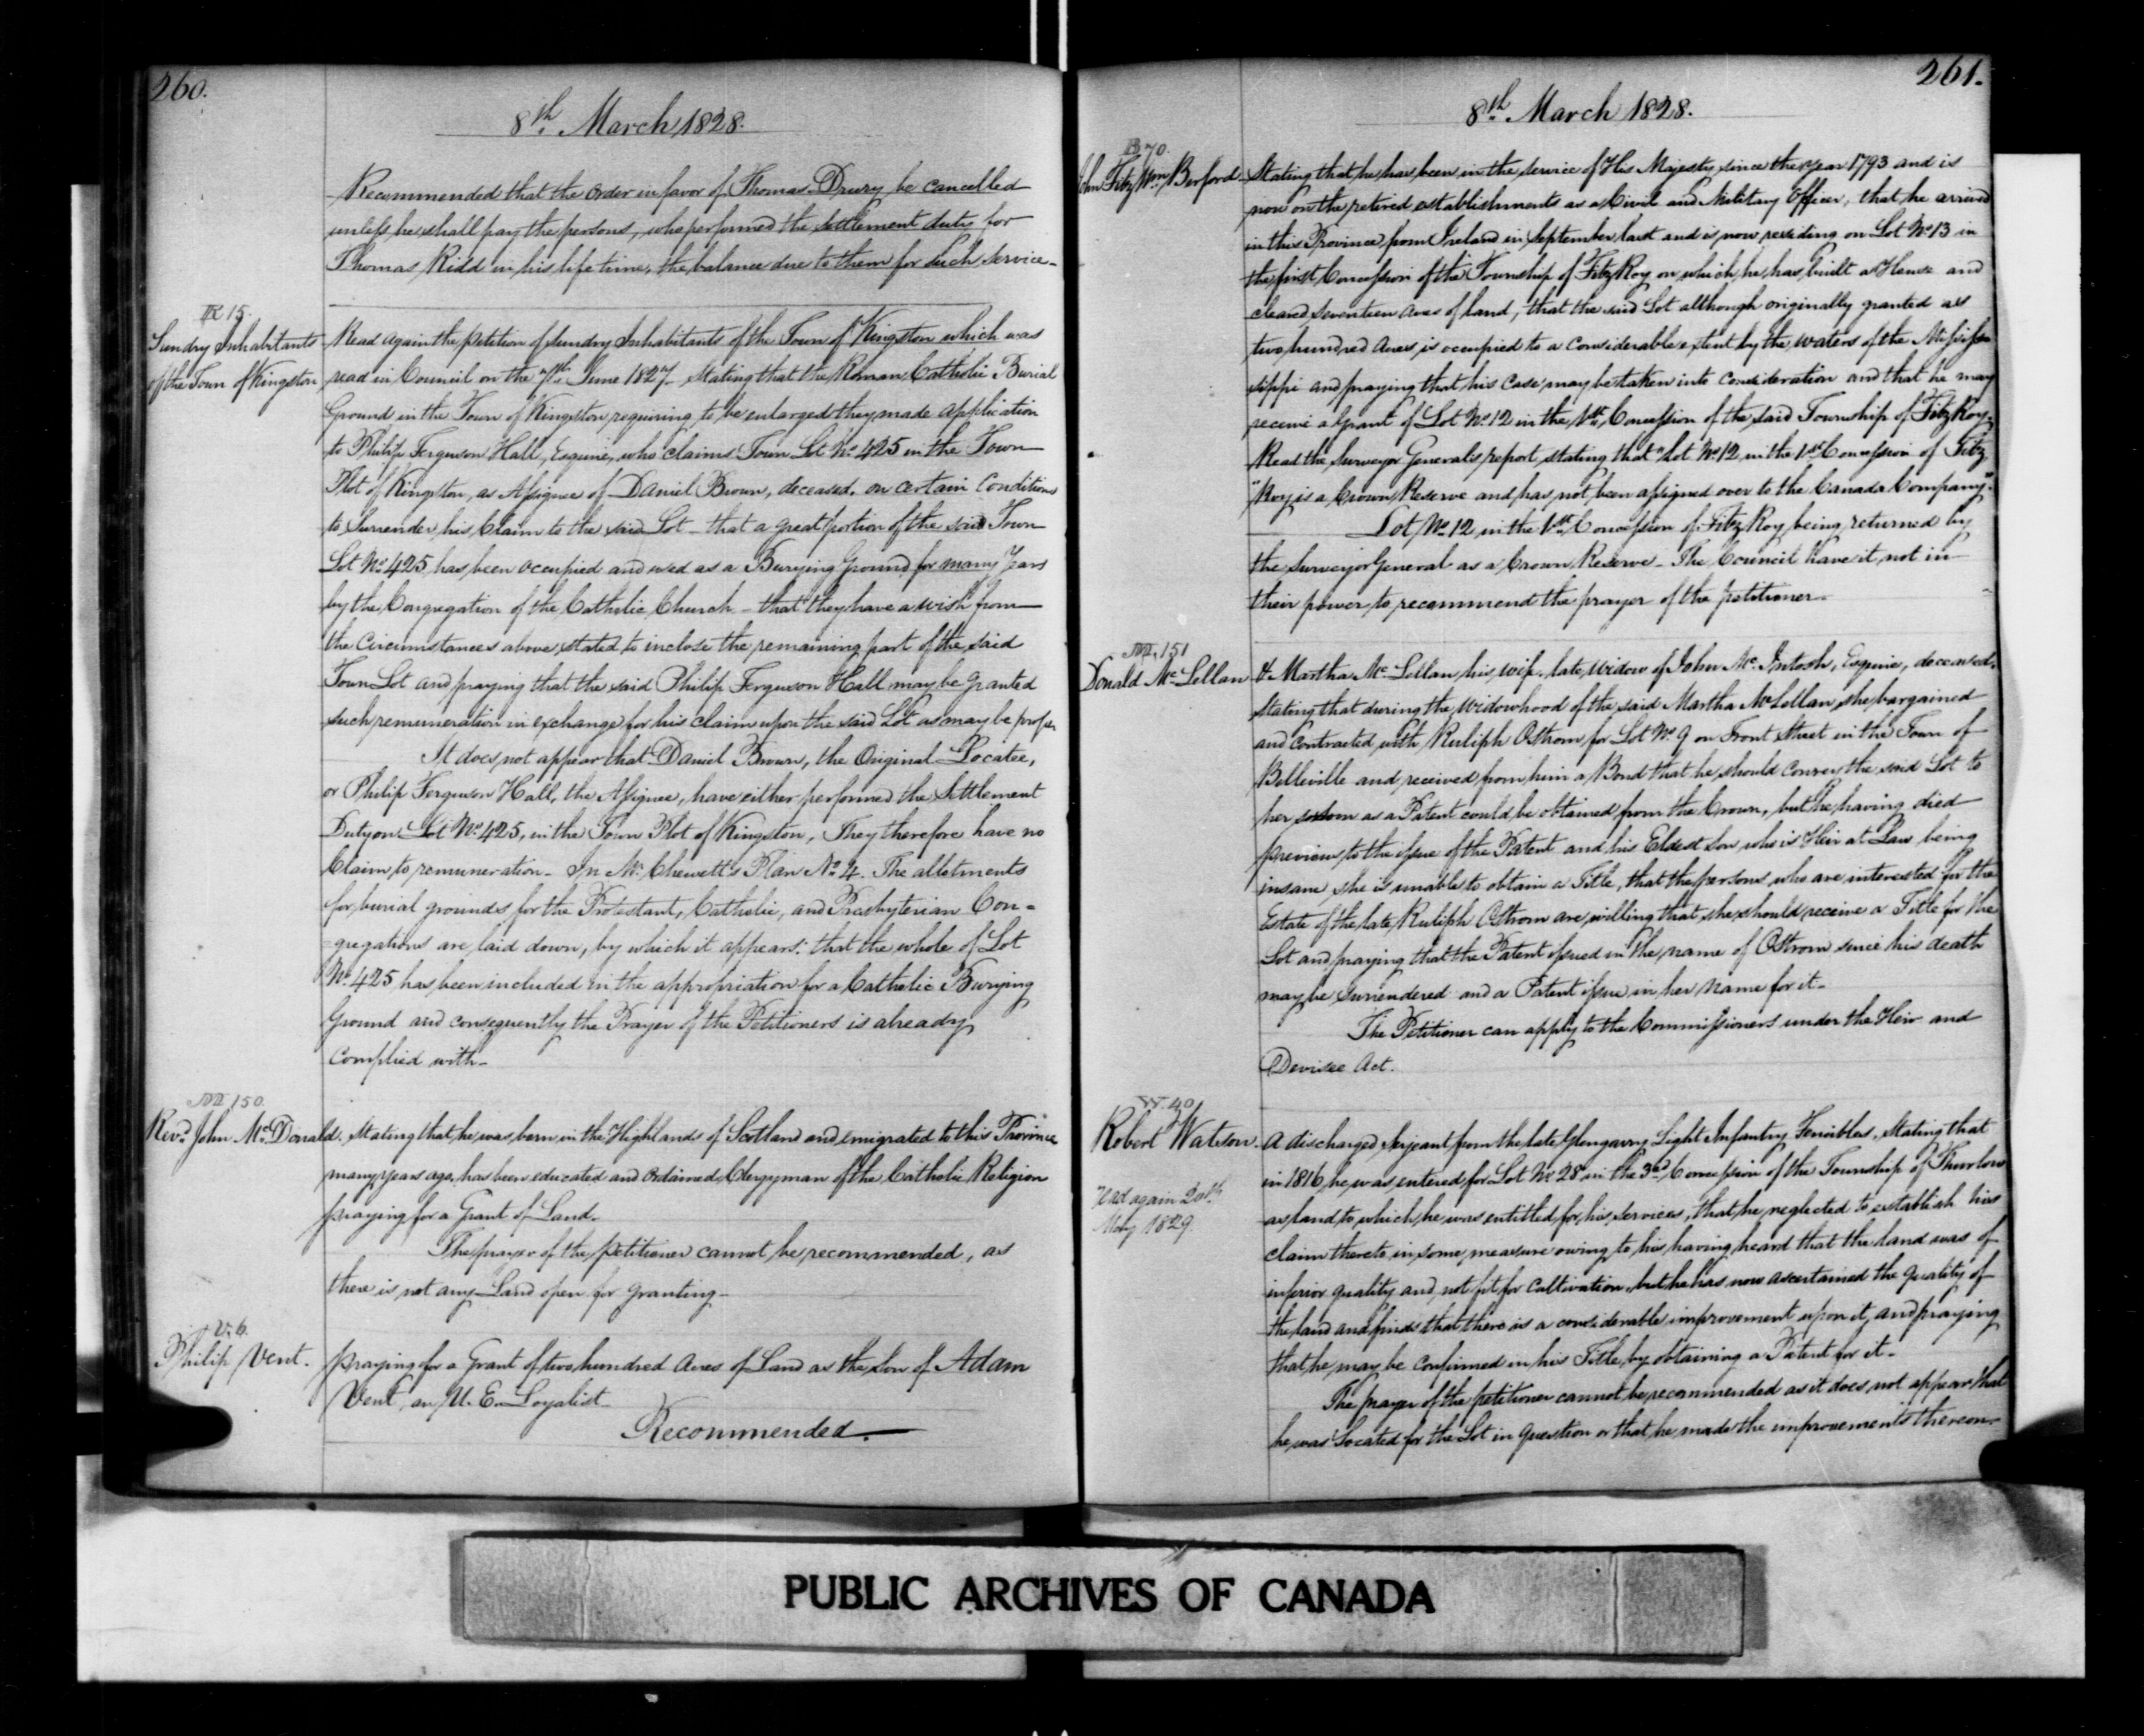 260.
8th March 1828.
Recommended that the order in favor of Thomas Drury be cancelled
unless he shall pay the persons, who performed the settlement duty for
Thomas Ridd in his life time, the balance due to them for such service -
K 15.
Sundry Inhabitants
of the Town of Kingston
Read again the petition of sundry Inhabitants of the Town of Kingston which was
read in Council on the 7th June 1827 - Stating that the Roman Catholic Burial
Ground in the Town of Kingston requiring to be enlarged they made application
to Philip Ferguson Hall, Esquire, who claims Town Lot No. 425 in the Town
Plot of Kingston, as Assignee of Daniel Brown, deceased, on certain Conditions
to Surrender his Claim to the said Lot - that a great portion of the said Town
Lot No. 425 has been occupied and used as a Burying Ground for many Years
by the Congregation of the Catholic Church - that they have a wish from
the Circumstances above stated to inclose the remaining part of the said
Town Lot and praying that the said Philip Ferguson Hall may be granted
such remuneration in exchange for his claim upon the said Lot as may be proper
It does not appear that Daniel Brown, the Original Locatee,
or Philip Ferguson Hall, the Assignee, have either performed the Settlement
Duty on Lot No. 425, in the Town Plot of Kingston, They therefore have no
Claim to remuneration - In Mr. Chewett's Plan No. 4. The allotments
for burial grounds for the Protestant, Catholic, and Presbyterian Con=
=gregations are laid down, by which it appears: that the whole of Lot
No. 425 has been included in the appropriation for a Catholic Burying
Ground and consequently the Prayer of the Petitioners is already
Complied with -
M 150.
Revd. John McDonald.
Stating that he was born in the Highlands of Scotland and emigrated to this Province
many years ago, has been educated and ordained Clergyman of the Catholic Religion
praying for a Grant of Land -
The prayer of the petitioner cannot be recommended, as
there is not any Land open for granting -
V. 6.
Philip Vent.
praying for a Grant of two hundred Acres of Land as the Son of Adam
Vent, an U. E. Loyalist -
Recommended.
261.
8th March 1828.
B 70.
John Fitz Wm Burford
Stating that he has been in the service of His Majesty since the year 1793 and is
now on the retired establishments as a Civil and Military Officer, that he arrived
in this Province from Ireland in September last and is now residing on Lot No. 13 in
the first Concession of the Township of Fitz Roy on which he has built a House and
cleared seventeen acres of land, that the said Lot although originally granted as
two hundred Acres is occupied to a considerable extent by the waters of the Missis
sippi and praying that his case may be taken into consideration and that he may
receive a Grant of Lot No. 12 in the 1st Concession of the said Township of Fitz Roy.
Read the Surveyor General's report stating that "Lot No. 12 in the 1st Concession of Fitz
"Roy is a Crown Reserve and has not been assigned over to the Canada Company."
Lot No. 12 in the 1st Concession of Fitz Roy being returned by
the Surveyor General as a Crown Reserve - The Council have it not in
their power to recommend the prayer of the petitioner -
M. 151
Donald McLellan
& Martha McLellan, his wife, late widow of John McIntosh, Esquire, deceased,
Stating that during the widowhood of the said Martha McLellan, she bargained
and contracted with Ruliph Ostrom for Lot No. 9 on Front Street in the Town of
Belleville and received from him a Bond that he should convey the said Lot to
her so soon as a Patent could be obtained from the Crown, but he having died
previous to the issue of the Patent and his Eldest Son who is Heir at Law being
insane she is unable to obtain a Title, that the persons who are interested for the
Estate of the late Ruliph Ostrom are willing that she should receive a Title for the
Lot and praying that the Patent issued in the name of Ostrom since his death
may be surrendered and a Patent issue in her name for it -
The Petitioner can apply to the Commissioners under the Heir and
Devisee Act.
W. 40
Robert Watson.
read again 20th
May 1829
A discharged Serjeant from the late Glengarry Light Infantry Fencibles, Stating that
in 1816 he was entered for Lot No. 28 in the 3rd Concession of the Township of Thurlow
as land to which he was entitled for his services, that he neglected to establish his
claim thereto in some measure owing to his having heard that the land was of
inferior quality and not fit for cultivation, but he has now ascertained the quality of
the land and finds that there is a considerable improvement upon it, and praying
that he may be Confirmed in his Title by obtaining a Patent for it -
The prayer of the petitioner cannot be recommended as it does not appear that
he was located for the Lot in question or that he made the improvements thereon -
PUBLIC ARCHIVES OF CANADA